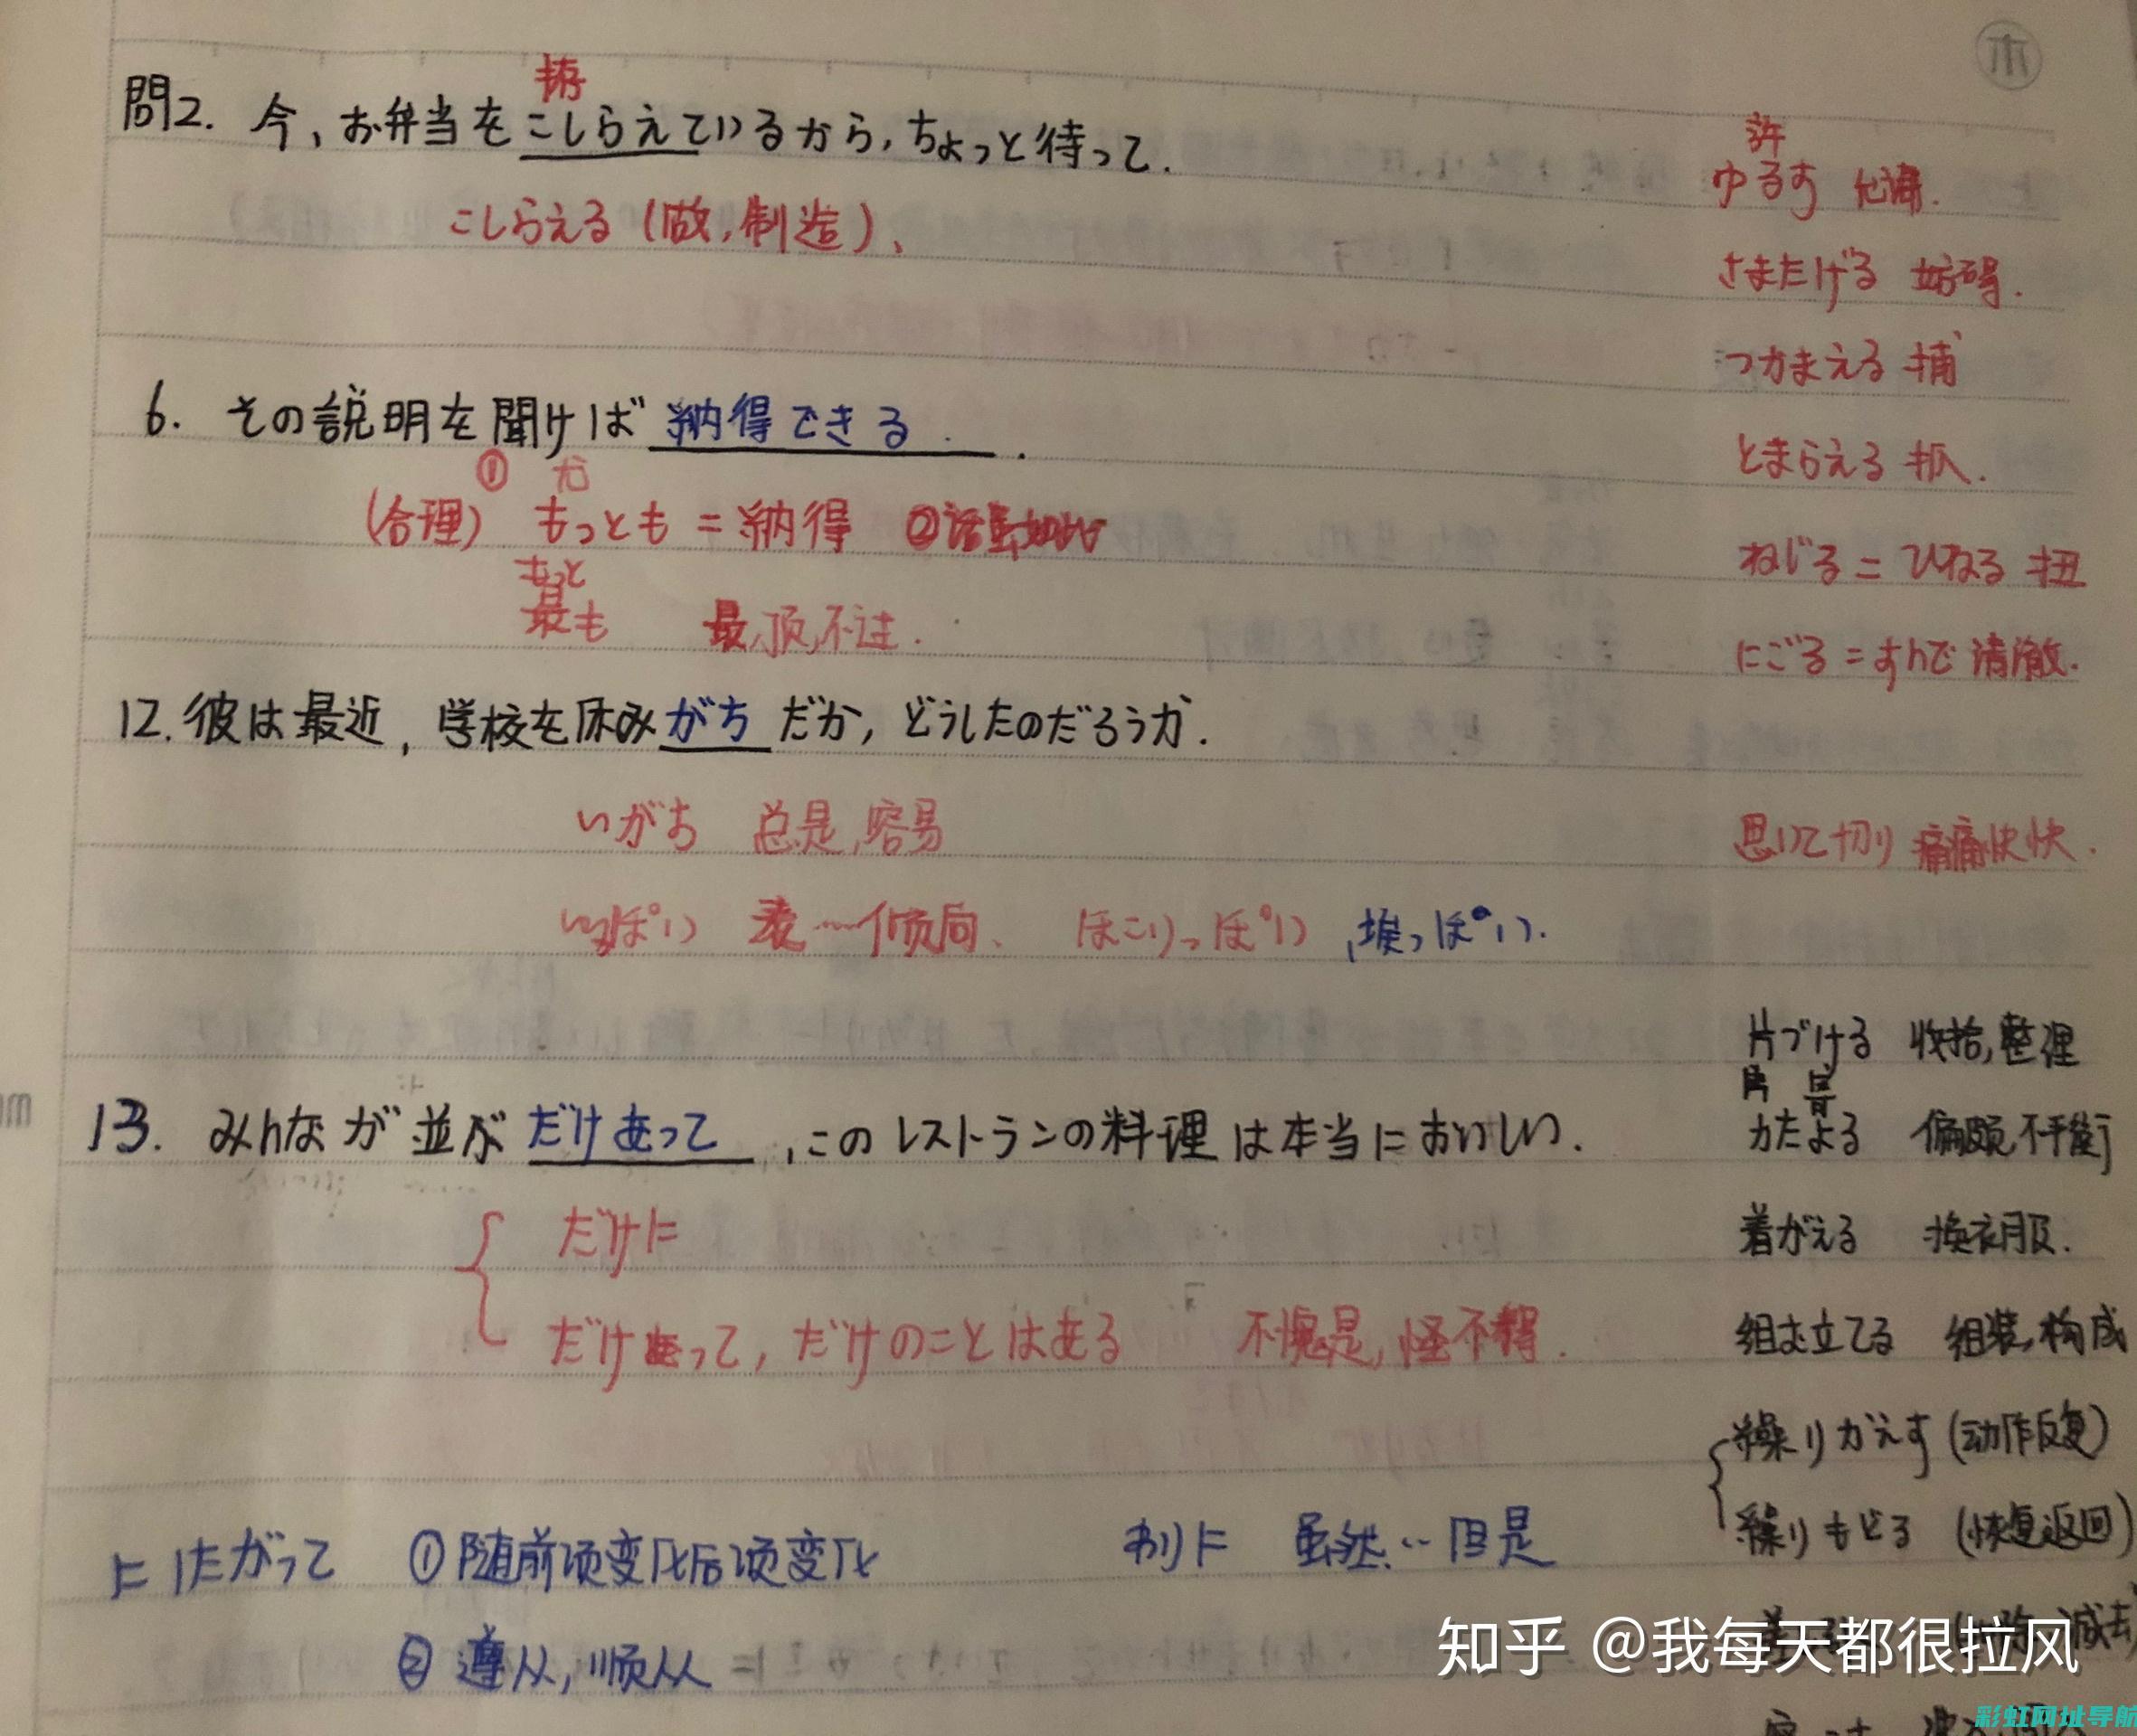 問2. 今、お弁当をこしらえているから,ちょっと待って.
こしらえる(做,制造)、
6. その説明を聞けば 納得できる.
① 尤
(合理) もっとも = 納得 ②
もっと
最も 最,顶,不过.
12. 彼は最近, 学校を休みがちだか, どうしたのだろうか.
いがち 总是,容易
っぽい 表…倾向、 ほこりっぽい ,埃っぽい.
13. みんなが並ぶ だけあって ,このレストランの料理は本当においしい.
だけに
だけあって, だけのことはある 不愧是,怪不得.
にしたがって ①随前项变化后项变化
②遵从,顺从
わりに 虽然…但是
許
ゆるす 允许.
さまたげる 妨碍.
つかまえる 捕
とまらえる 抓.
ねじる = ひねる 扭
にごる = すんで 清澈.
思いて切り 痛痛快快.
片づける 收拾,整理
かたよる 偏颇,不平衡
着がえる 换衣服.
组む立てる 组装,构成
繰りがえす (动作反复)
繰りもどる (恢复返回)
减去
知乎 @我每天都很拉风
彩虹网址导航